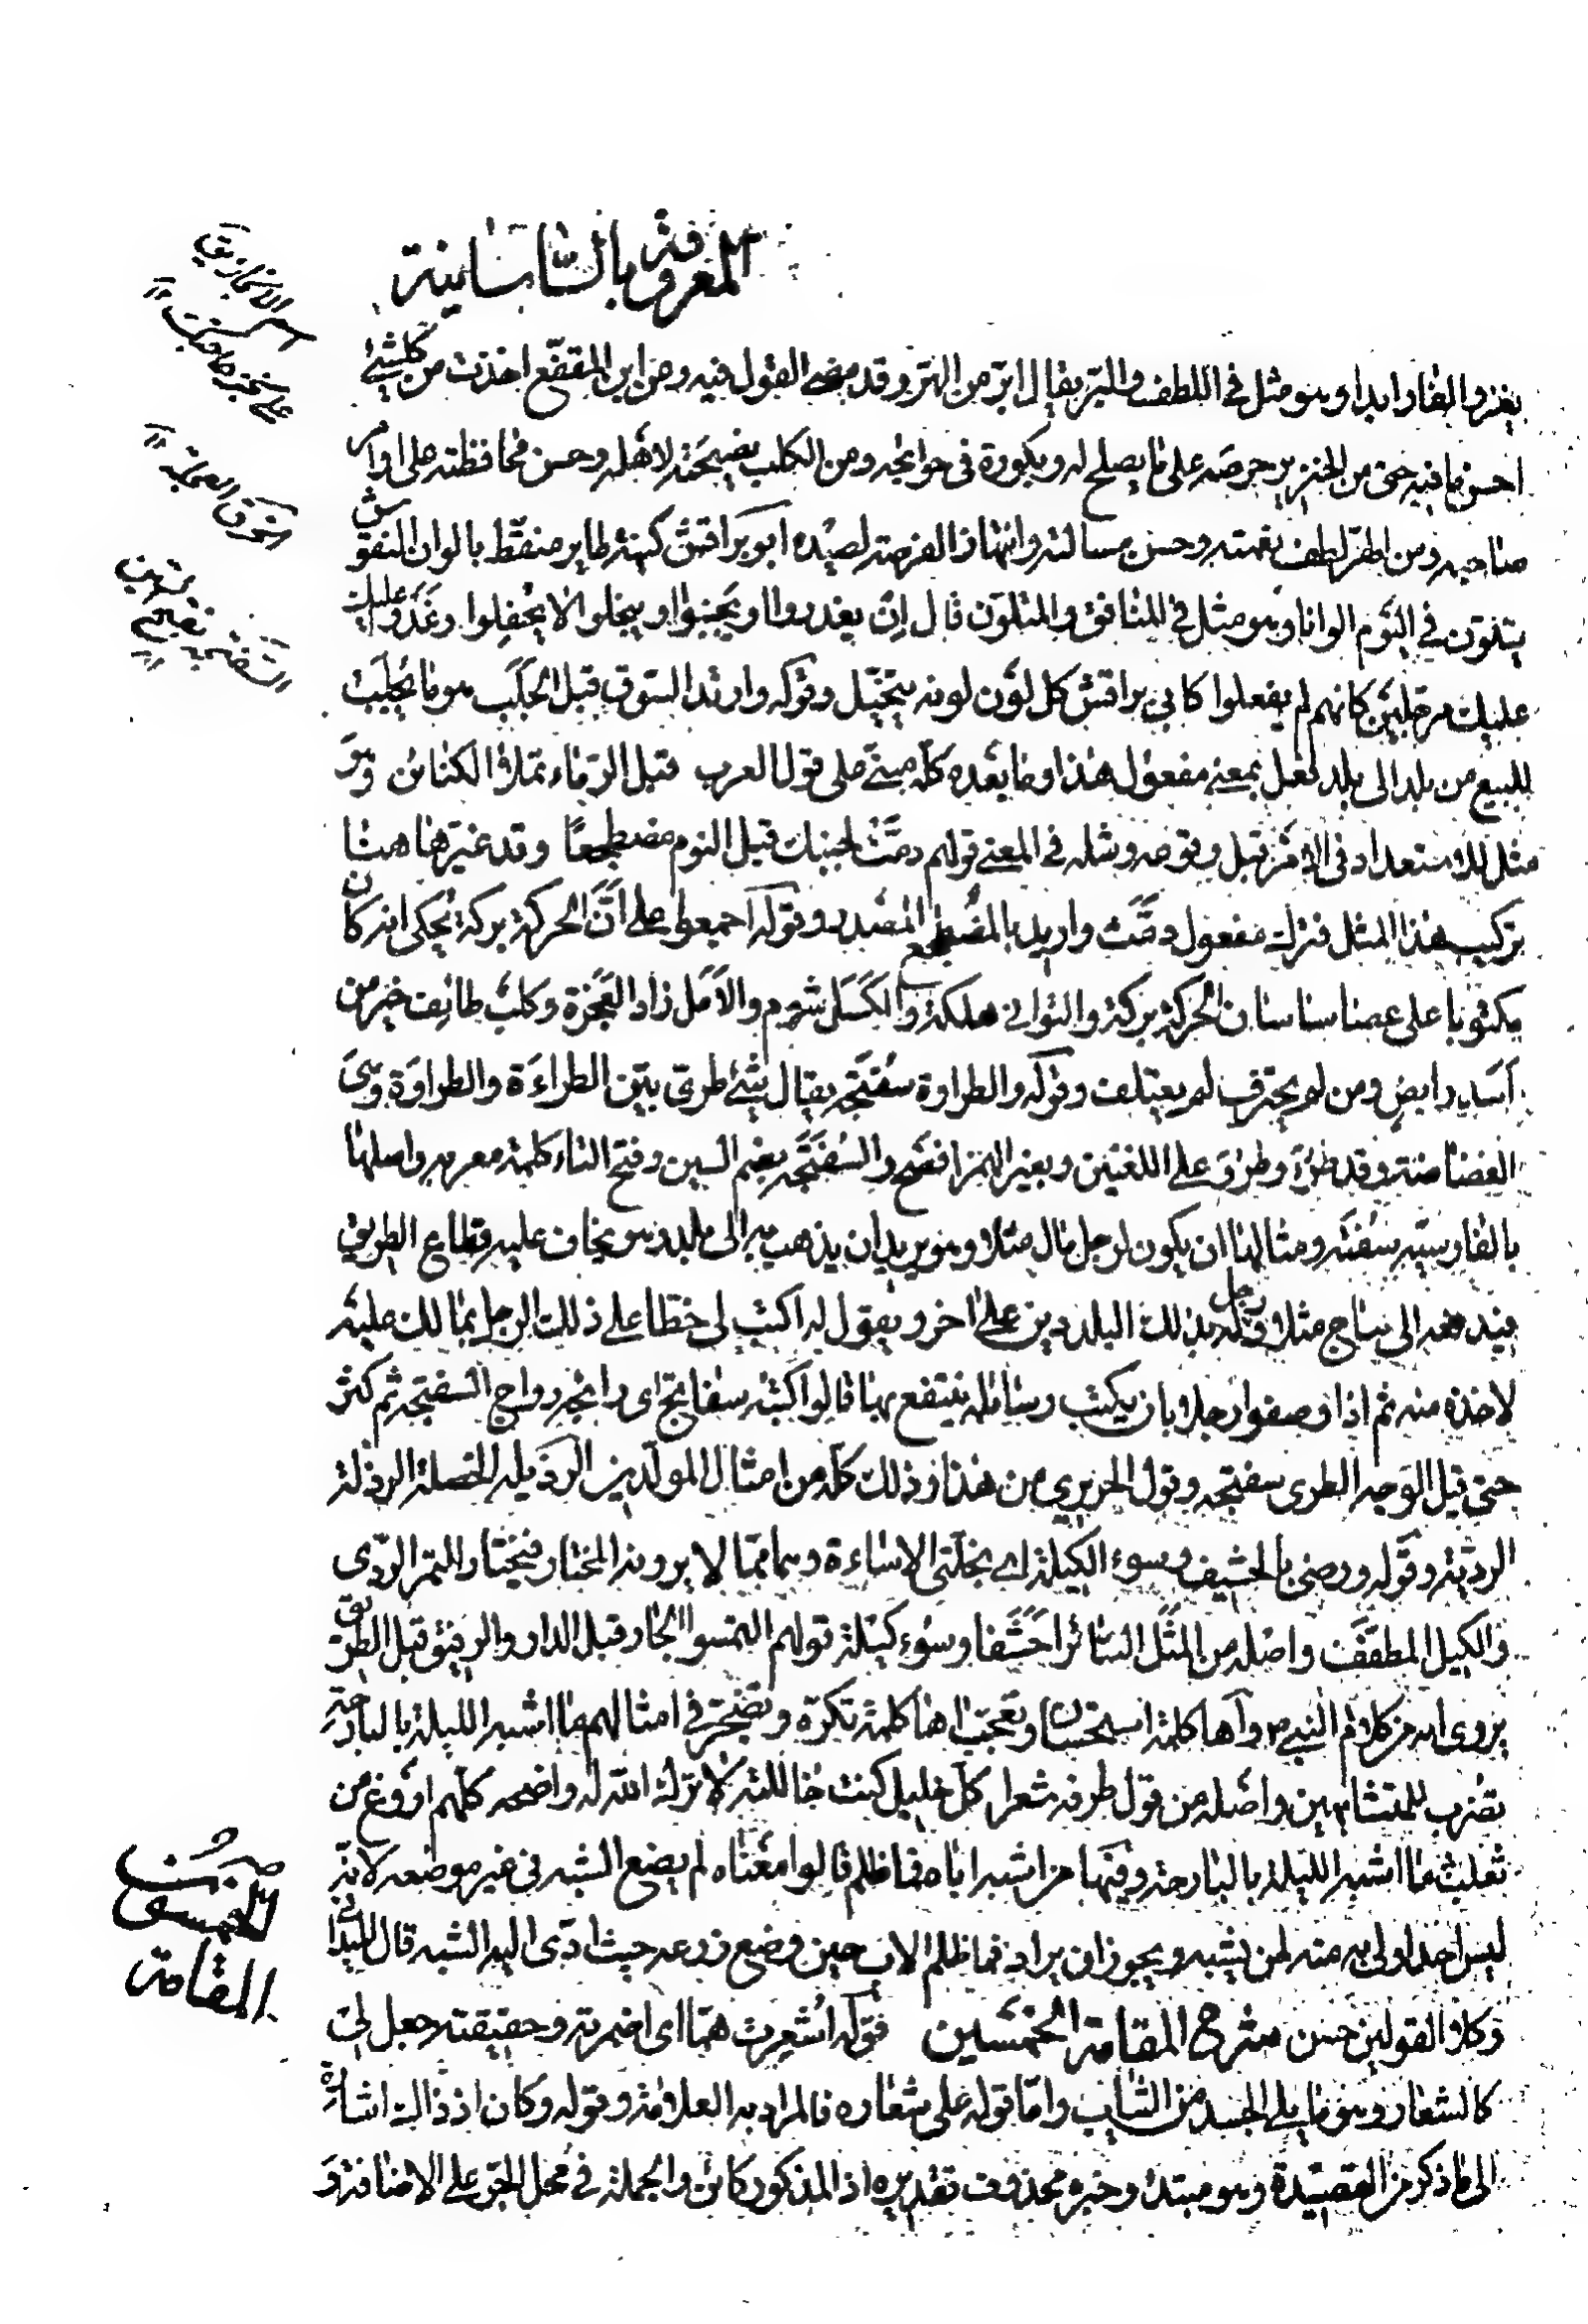 المعروفة بالساسانية
يغزو الفار ابدا وهو مثل في اللطف والبر يقال ابر من الهر وقد مضى القول فيه وعن ابن المقفع اخذت من كل شيء
احسن ما فيه حتى من الخنزير حرصه على ما يصلح له وبكوره في حوايجه ومن الكلب نصيحته لاهله وحسن محافظته على اوامر
صاحبه ومن الهر لطف نغمته وحسن مسالته وانتهاز الفرصة لصيده ابو براقش كنية طاير منقط بالوان النقوش
يتلون في اليوم الوانا وهو مثل في المنافق والمتلون قال ان يغدروا او يجبنوا او يبخلوا لا يحفلوا وغدوا عليك
عليك مرجلين كانهم لم يفعلوا كابي براقش كل لون لونه يتخيل وقوله وارتد السوق قبل الجلب هو ما يجلب
للبيع من بلد الى بلد فعل بمعنى مفعول هذا وما بعده كله مبني على قول العرب قبل الرماء تملا الكنائن وهو
مثل للاستعداد في الامر قبل وقوعه ومثله في المعنى قولهم دمث لجنبك قبل النوم مضطجعا وقد غير هاهنا
تركيب هذا المثل فترك مفعول دمث واريد بالمضطجع المصدر وقوله اجمعوا على ان الحركة بركة يحكى انه كان
مكتوبا على عصا ساسان الحركة بركة والتواني هلكة والكسل شوم والامل زاد العجزة وكلب طائف خير من
اسد رابض ومن لم يحترف لم يعتلف وقوله والطراوة سفتجة يقال شيء طري بين الطراءة والطراوة وهي
الغضاضة وقد طرؤ وطرو على اللغتين وبغير الهمز افصح والسفتجة بضم السين وفتح التاء كلمة معربة واصلها
بالفارسية سفته ومثالها ان يكون لرجل مال مثلا وهو يريد ان يذهب به الى بلد وهو يخاف عليه قطاع الطريق
فيدفعه الى بياع مثلا او رجل له بذلك البلد دين على اخر ويقول له اكتب لي خطا على ذلك الرجل بمالك عليه
لاخذه منه ثم اذا وصفوا رجلا بان يكتب رسائله ينتفع بها قالوا كتبه سفاتج اى رائجة رواج السفتجة ثم كثر
حتى قيل الوجه الطرى سفتجه وقول الحريري من هذا وذلك كله من امثال المولدين الرذيلة الخصلة الرذلة
الرديئة وقوله ورضى بالحشف وسوء الكيلة اي بخلتي الاساءة وهما مما لا يرونه المختار فيختار التمر الردى
والكيل المطفف واصله من المثل السائر احشفا وسوء كيلة قولهم التمسوا الجار قبل الدار والرفيق قبل الطريق
يروى انه من كلام النبي م واها كلمة استحسان وتعجب اها كلمة تكره وتضجر في امثالهم ما اشبه الليلة بالبارحة
تضرب للمتشابهين واصله من قول طرفه شعرا كل خليل كنت خاللته لا ترك الله له واضحه كلهم اروغ من
ثعلب ما اشبه الليلة بالبارحة وفيها من اشبه اباه فما ظلم قالوا معناه لم يضع الشبه في غير موضعه لانه
ليس احد اولى به منه لمن يشبه ويجوز ان يراد فما ظلم الاب حين وضع زرعه حيث ادى اليه الشبه قال الميداني
وكلا القولين حسن شرح المقامة الخمسين قوله اشعرت هما اى اضمرته وحقيقته جعل لي
كالشعار وهو ما يلي الجسد من الثياب واما قوله على شعاره فالمراد به العلامة وقوله وكان اذ ذاك اشارة
الى ما ذكر من القصيدة وهو مبتدا وخبره محذوف تقديره اذ المذكور كائن والجملة في محل الجر على الاضافة و
المقامة
الخمسون